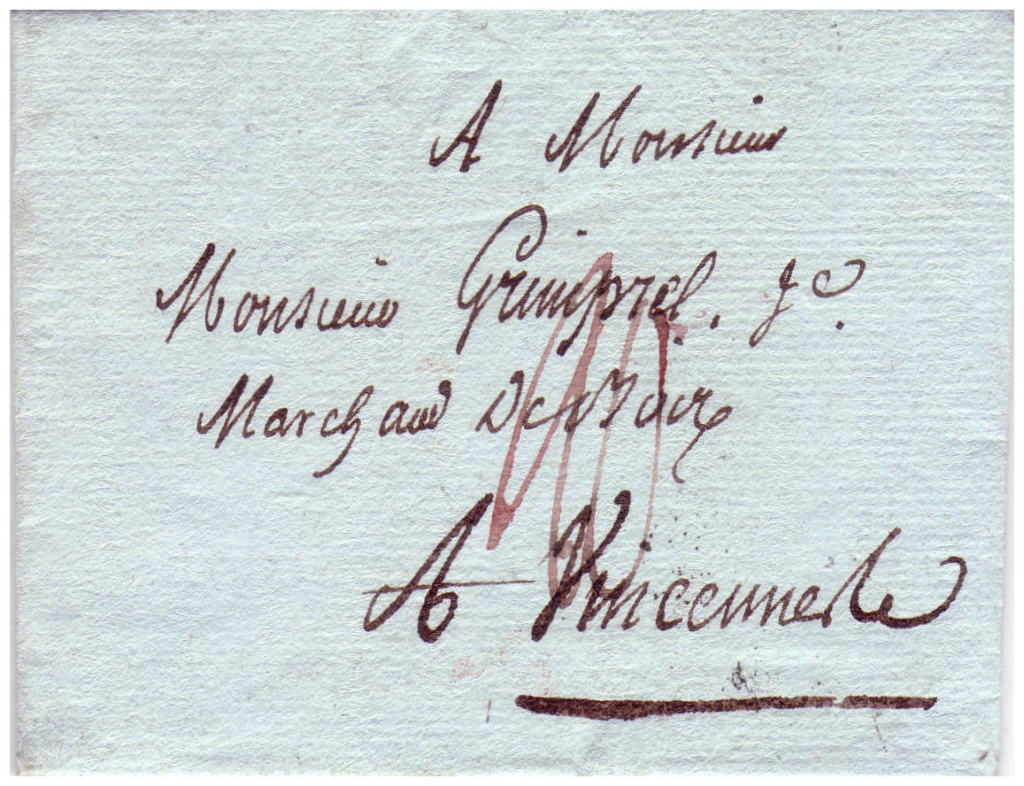 A Monsieur
Monsieur Grimprel. Jc.
Marchand De Bois
A Vincennes